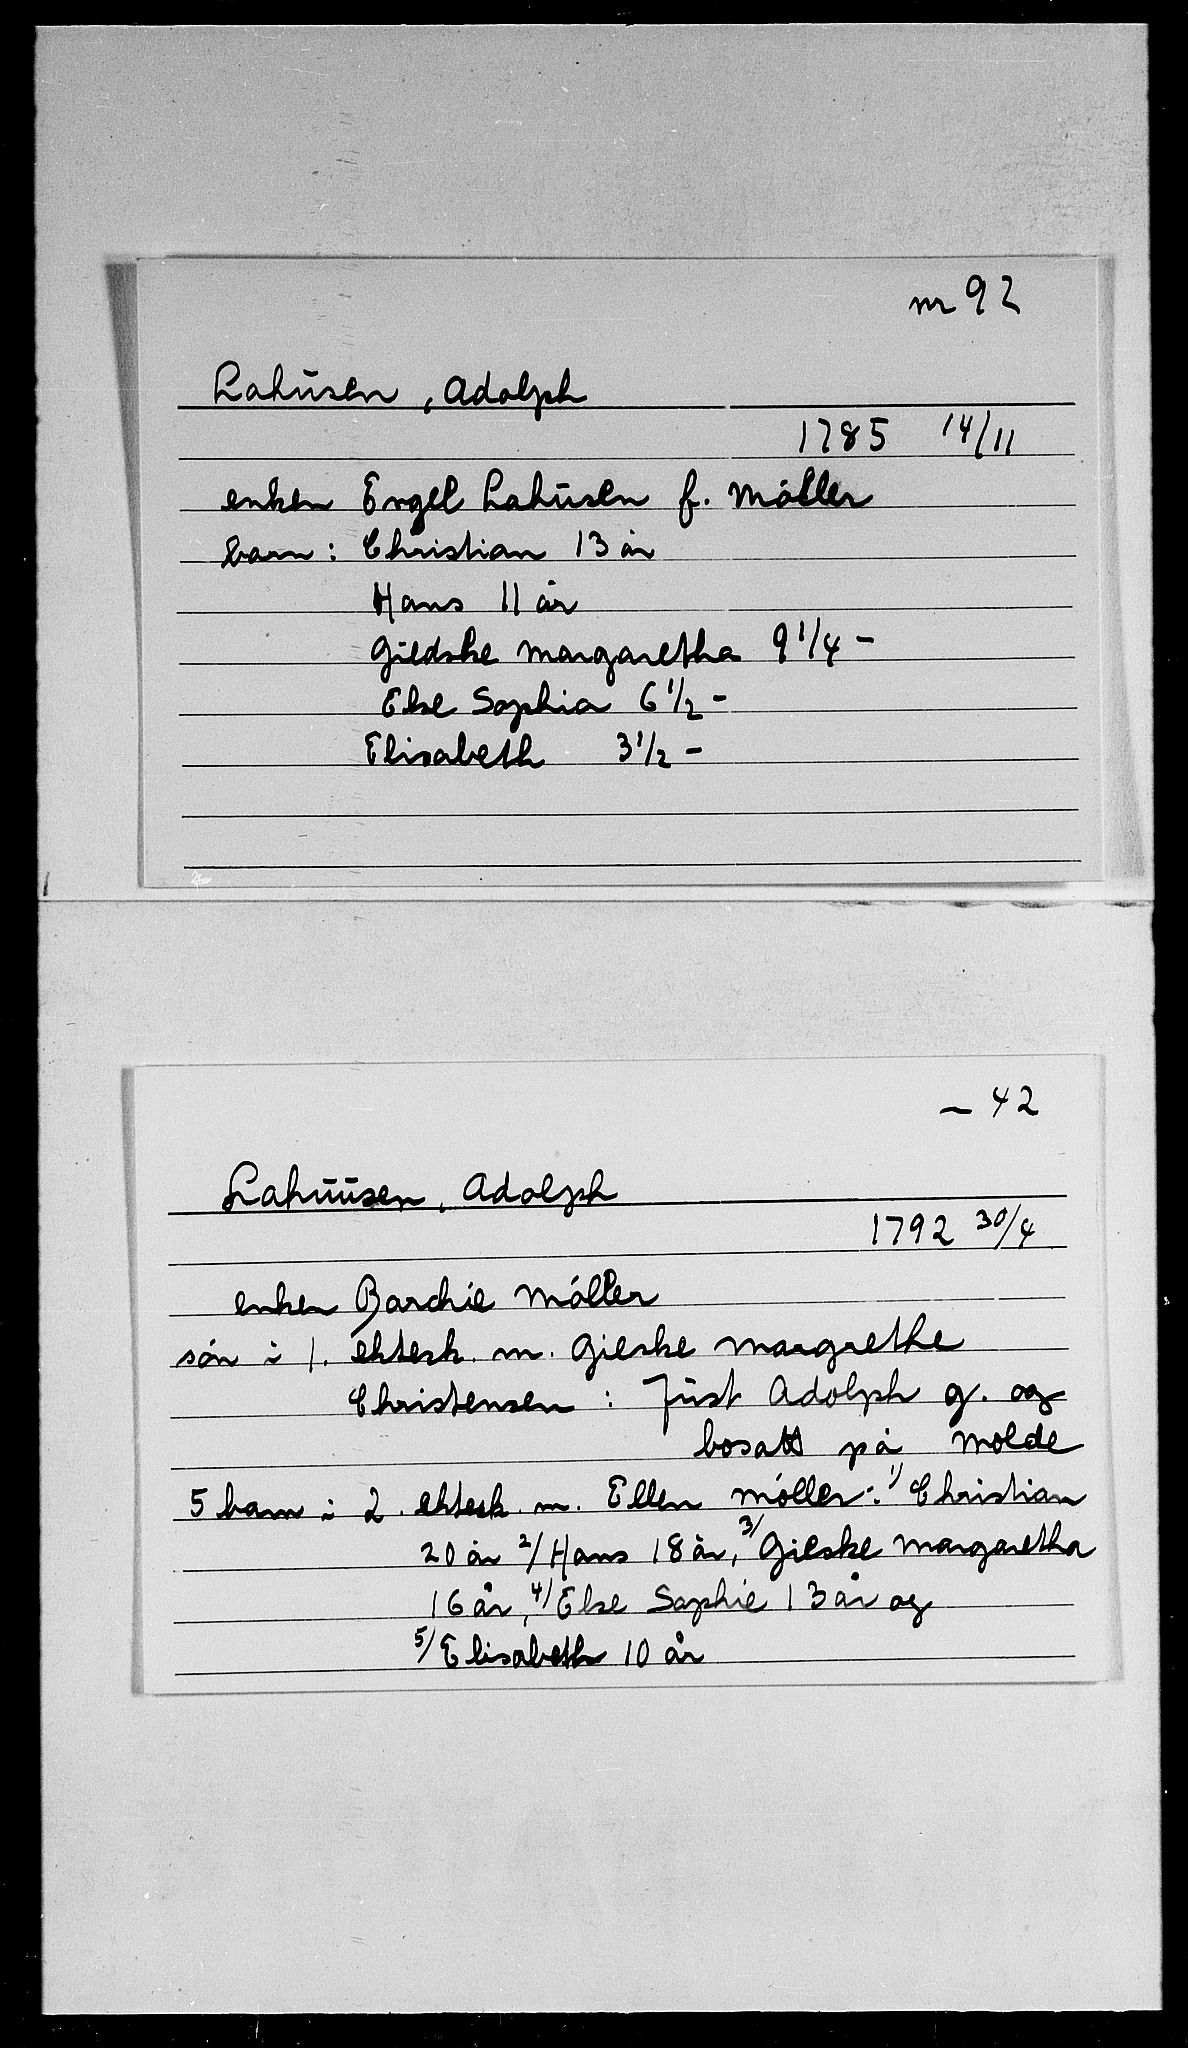 nr 92
Lahusen, Adolph
1785 14/11
enken Engel Lahusen f. Møller
barn: Christian 13 år
Hans 11 år
Giedske Margaretha 9 1/4 -
Else Sophia 6 1/2 -
Elisabeth 3 1/2 -
- 42
Lahuusen, Adolph
1792 30/4
enken Barchie Møller
søn i 1. ektesk. m. Gieske Margrethe
Christensen: Just Adolph g. og
bosatt på Molde
5 barn i 2. ektesk. m. Ellen Møller: 1/ Christian
20 år 2/ Hans 18 år, 3/ Gieske Margaretha
16 år, 4/ Else Sophie 13 år og
5/ Elisabeth 10 år